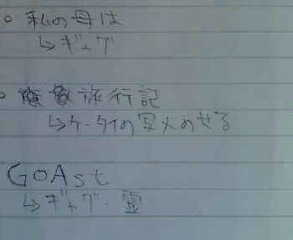 ○ 私の母は
↳ギャグ
○ 旅行記
↳ケータイの写メのせる
GOAst
↳ギャグ・霊